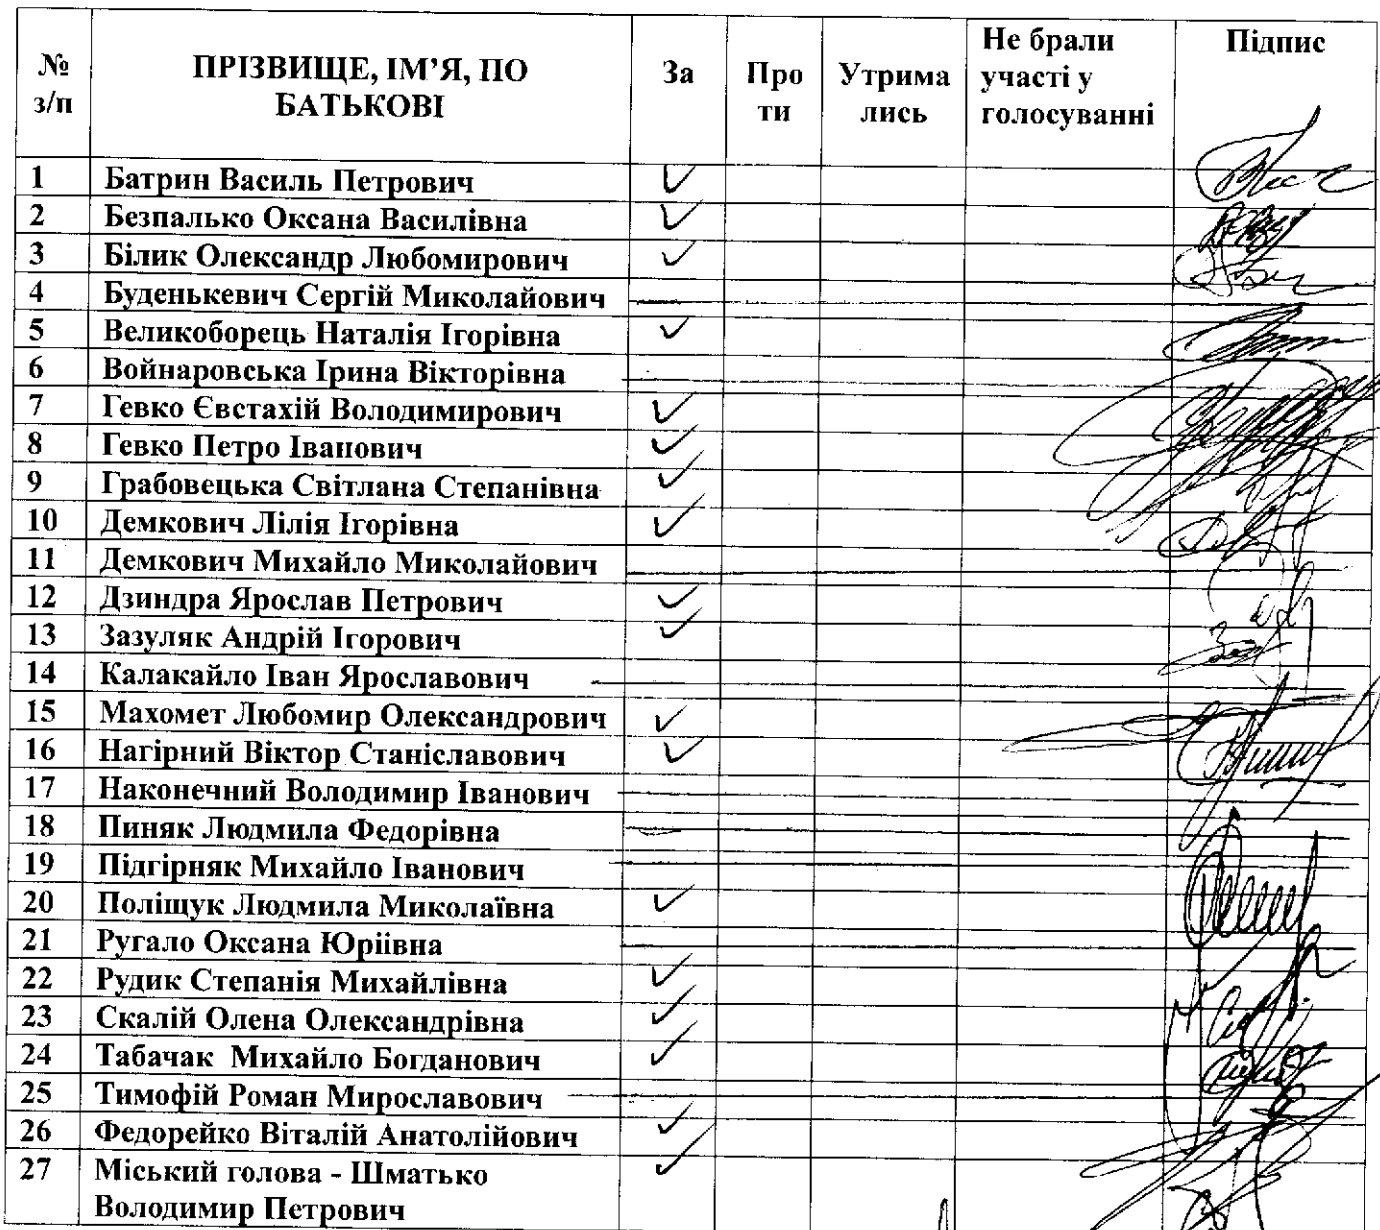 № з/п ПРІЗВИЩЕ, ІМ’Я, ПО БАТЬКОВІ За Про ти Утрима лись Не брали участі у голосуванні Підпис
1 Батрин Василь Петрович ✓
2 Безпалько Оксана Василівна ✓
3 Білик Олександр Любомирович ✓
4 Буденькевич Сергій Миколайович
5 Великоборець Наталія Ігорівна ✓
6 Войнаровська Ірина Вікторівна
7 Гевко Євстахій Володимирович ✓
8 Гевко Петро Іванович ✓
9 Грабовецька Світлана Степанівна ✓
10 Демкович Лілія Ігорівна ✓
11 Демкович Михайло Миколайович
12 Дзиндра Ярослав Петрович ✓
13 Зазуляк Андрій Ігорович ✓
14 Калакайло Іван Ярославович
15 Махомет Любомир Олександрович ✓
16 Нагірний Віктор Станіславович ✓
17 Наконечний Володимир Іванович
18 Пиняк Людмила Федорівна
19 Підгірняк Михайло Іванович
20 Поліщук Людмила Миколаївна ✓
21 Ругало Оксана Юріївна
22 Рудик Степанія Михайлівна ✓
23 Скалій Олена Олександрівна ✓
24 Табачак Михайло Богданович ✓
25 Тимофій Роман Мирославович
26 Федорейко Віталій Анатолійович ✓
27 Міський голова - Шматько ✓
Володимир Петрович